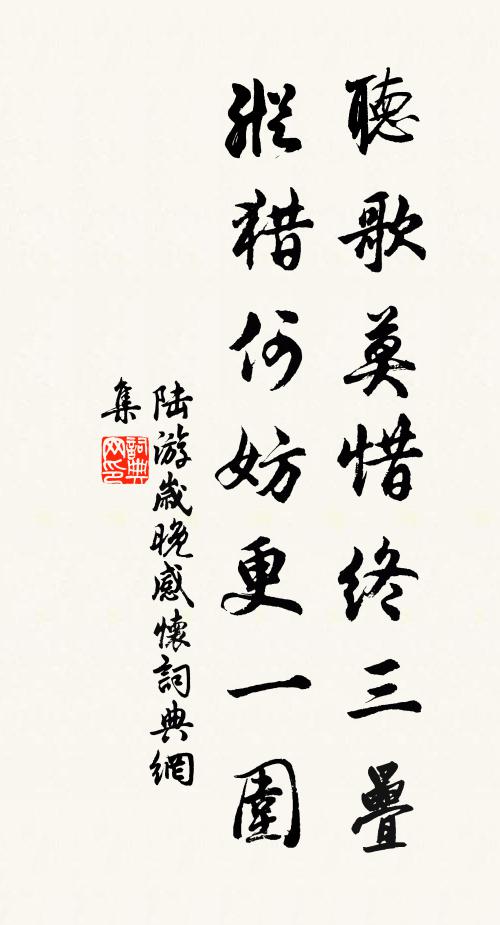 聽歌莫惜終三疊
縱猎何妨更一圍
陆游歲晚感懷詞典網
集
詞典
网印